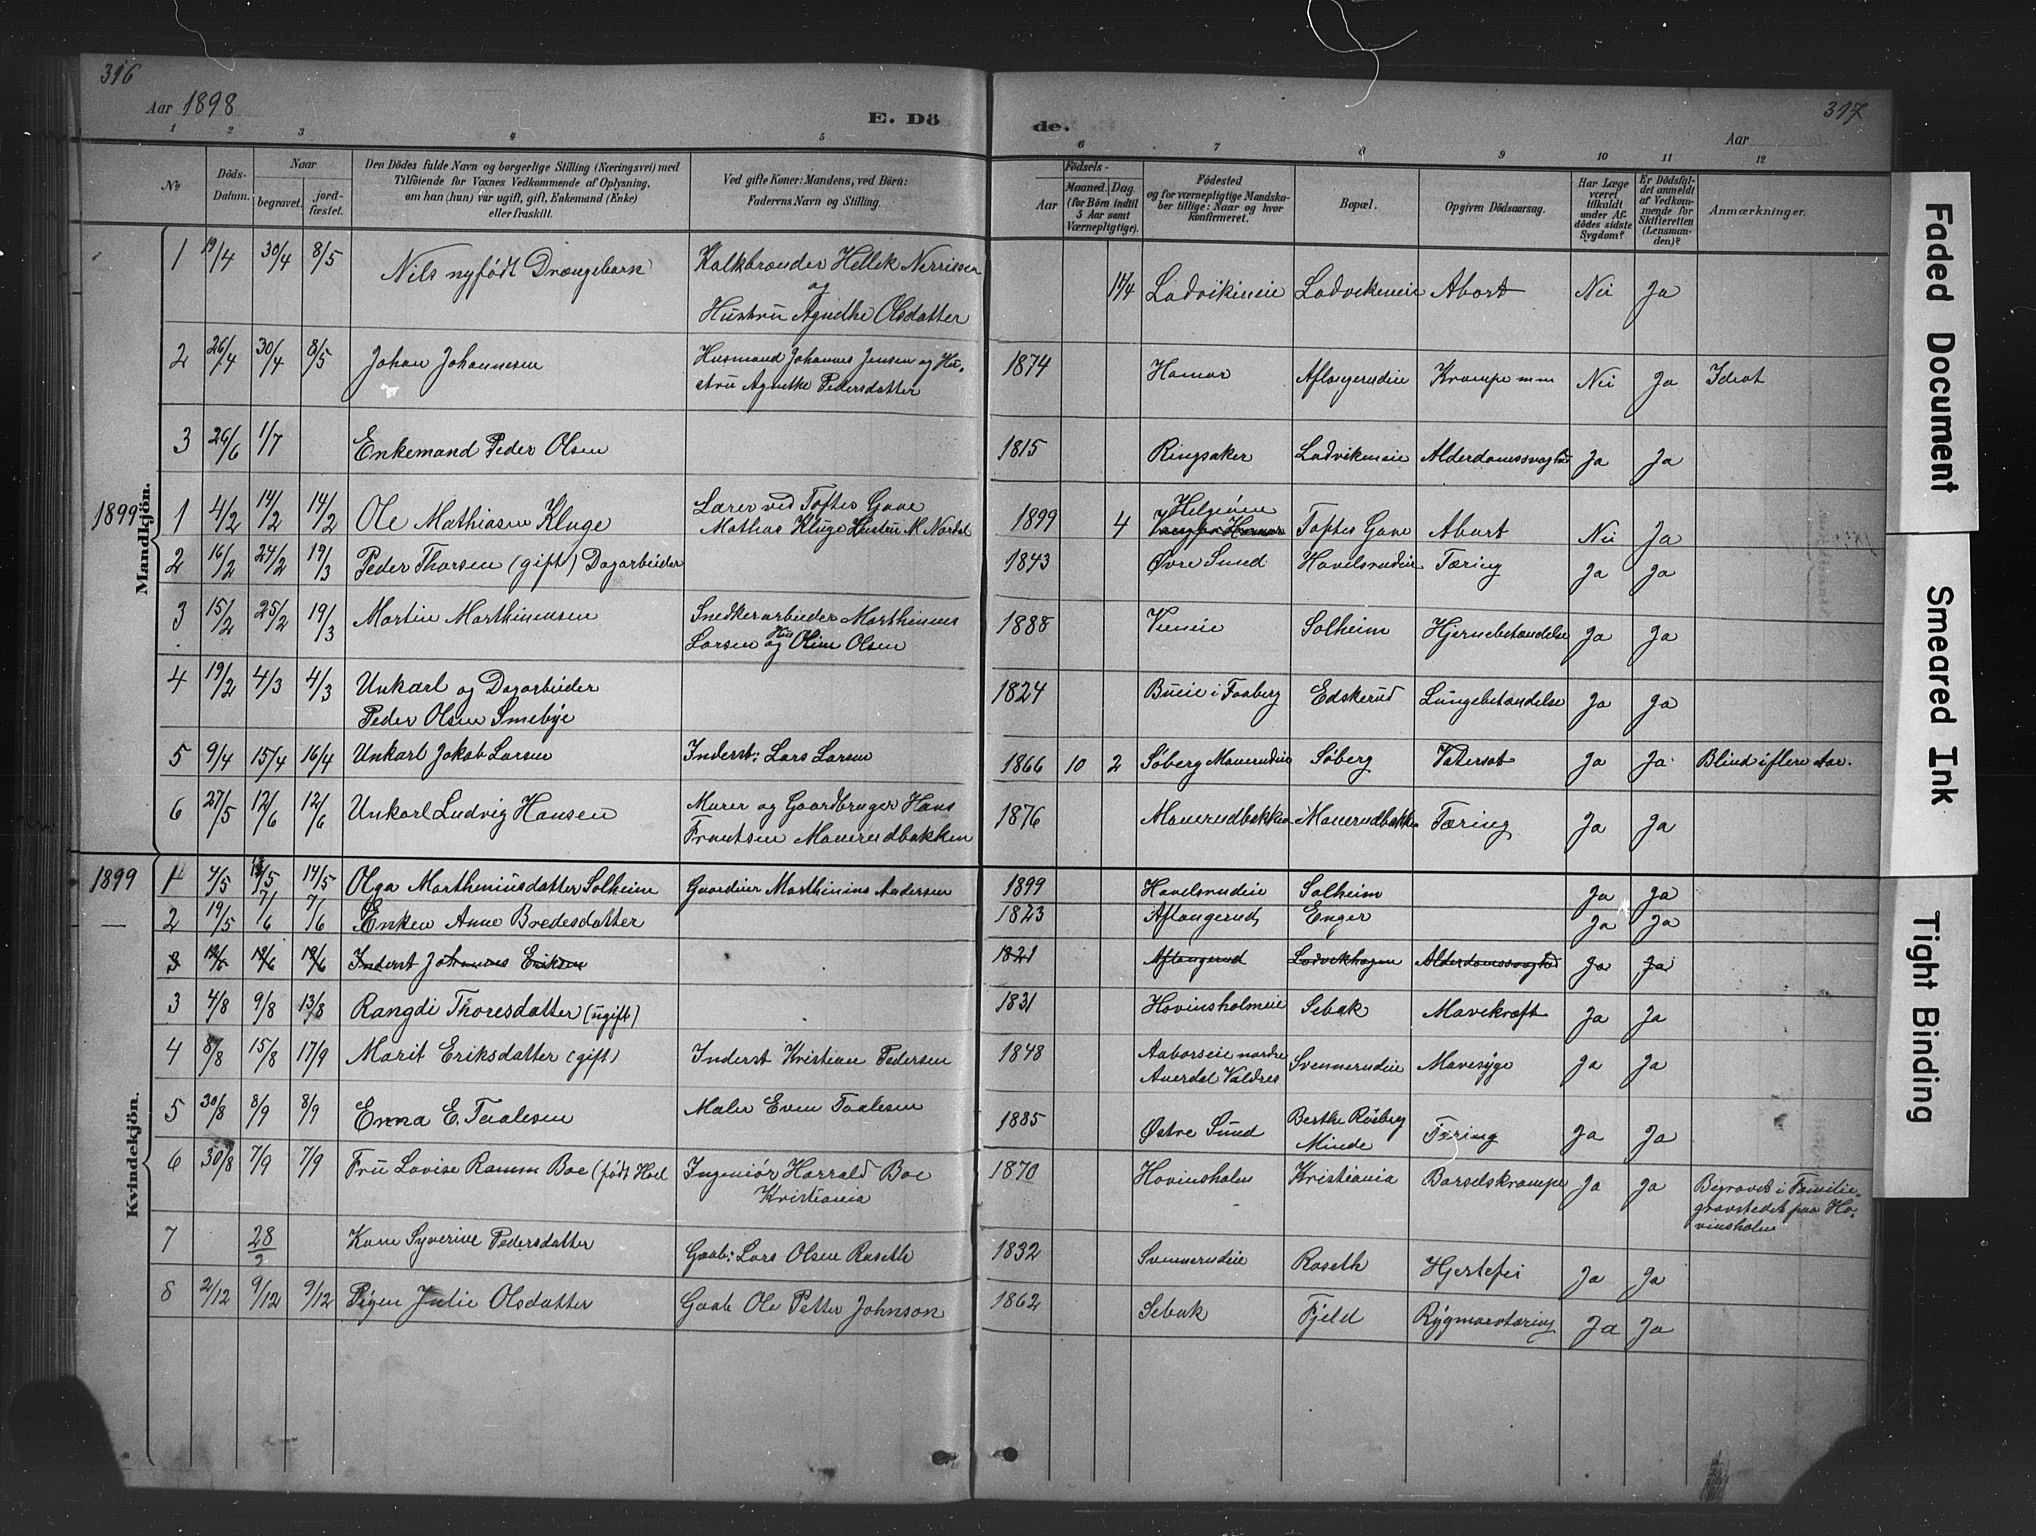 316
Aar 1898
E. Dö
1 2 3 4 5
No
Döds-
Datum.
Naar
begravet.
jord-
fæstet.
Den Dödes fulde Navn og borgerlige Stilling (Næringsvei) med
Tilföiende for Voxnes Vedkommende af Oplysning,
om han (hun) var ugift, gift, Enkemand (Enke)
eller fraskilt.
Ved gifte Koner: Mandens, ved Börn:
Faderens Navn og Stilling.
Mandkjön.
1 19/4 30/4 8/5 Nils nyfødt Drængebarn Kalkbrænder Hellek Nerrissen
og
Hustru Agnethe Olsdatter
2 26/4 30/4 8/5 Johan Johannesen Husmand Johannes Jensen og Hu-
stru Agnethe Pedersdatter
3 26/6 1/7 Enkemand Peder Olsen
1899 1 4/2 14/2 14/2 Ole Mathiasen Kluge Lærer ved Toftes Gave
Mathias Kluge Hustru M. Nordal
2 16/2 24/2 19/3 Peder Thorsen (gift) Dagarbeider
3 15/2 25/2 19/3 Martin Marthinusen Snedkerarbeider Marthinus
Larsen og Hu Oline Olsen
4 19/2 4/3 4/3 Unkarl og Dagarbeider
Peder Olsen Smebye
5 9/4 15/4 16/4 Unkarl Jakob Larsen Inderst: Lars Larsen
6 27/5 12/6 12/6 Unkarl Ludvig Hansen Murer og Gaardbruger Hans
Frantsen Mauerudbakken
Kvindekjön.
1899 1 4/5 /5 14/5 Olga Marthiniusdatter Solheim Gaardeier Marthinius Andersen
2 19/5 7/6 7/6 Enken Anne Bredesdatter
3 Inderst Johannes Eriksen
3 4/8 9/8 13/8 Rangdi Thoresdatter (ugift)
4 8/8 15/8 17/9 Marit Eriksdatter (gift) Inderst Kristian Pedersen
5 30/8 8/9 8/9 Emma E. Taalesen Maler Even Taalesen
6 30/8 7/9 7/9 Fru Lovise Ramm Boe (født Hoel Ingeniør Harrald Boe
Kristiania
7 28/9 Kone Syverine Pedersdatter Gaab: Lars Olsen Roseth
8 2/12 9/12 9/12 Pigen Julie Olsdatter Gaab Ole Petter Johnson
317
de.
Aar
6 7 8 9 10 11 12
Födsels-
Aar
Maaned.
Dag.
(for Börn indtil
5 Aar samt
Værnepligtige).
Födested
og for værnepligtige Mandska-
ber tillige: Naar og hvor
konfirmeret.
Bopæl.
Opgiven Dödsaarsag.
Har Læge
været
tilkaldt
under Af-
dödes sidste
Sygdom?
Er Dödsfal-
det anmeldt
af Vedkom-
mende for
Skifteretten
(Lensman-
den)?
Anmærkninger.
19/4 Ladvikineie Ladvikeneie Abort Nei Ja
1874 Hamar Aflangerudeie Krampe m m Nei Ja Idiot
1815 Ringsaker Ladvikeneie Alderdomssvaghed Ja Ja
Helgøeen
1899 4 Vang ved Hamar Toftes Gave Abort Nei Ja
1843 Øvre Sund Hovelsrudeie Tæring Ja Ja
1888 Vieneie Solheim Hjernebetændelse Ja Ja
1824 Bueie i Faaberg Edskerud Lungebetændelse Ja Ja
1866 10 2 Søberg Mauerudeie Søberg Vatersot Ja Ja Blind i flere Aar.
1876 Mauerudbakken Mauerudbakke Tæring Ja Ja
1899 Hovelsrudeie Solheim Ja Ja
1823 Aflangerud Enger Ja Ja
1821 Aflangerud Ladvikhagen Alderdomssvaghed Ja Ja
1831 Hovinsholmeie Sebak Mavekræft Ja Ja
1848 Aaborseie nordre
Aurdal Valdres Svennerudeie Mavesyge Ja Ja
1885 Østre Sund Berthe Røsberg
Minde Tæring Ja Ja
1870 Hovinsholm Kristiania Barselskrampe Ja Ja Begravet i Familie-
gravstedet paa Ho-
vinsholm
1832 Svennerudeie Roseth Hjertefei Ja Ja
1862 Sebak Fjeld Rygmarvtæring Ja Ja
Faded Document
Smeared Ink
Tight Binding